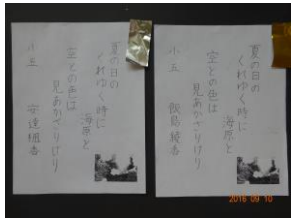 夏の日の
くれゆく時に
海原と
空との色は
見あかざりけり
小五 飯島綾香
夏の日の
くれゆく時に
海原と
空との色は
見あかざりけり
小五 安達 香
2016 09 10